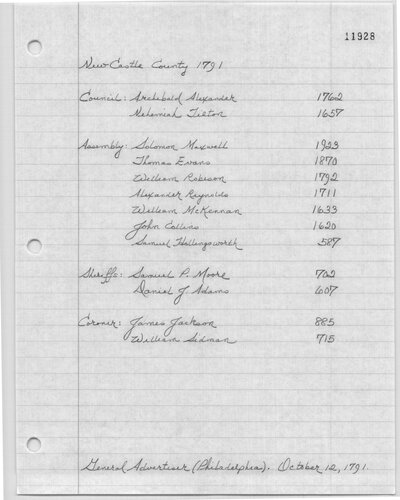 11928
New Castle County 1791
Council: Archibald Alexander 1762
Nehemiah Tilton 1657
Assembly: Solomon Maxwell 1923
Thomas Evans 1870
William Robeson 1792
Alexander Reynolds 1711
William McKennan 1633
John Collins 1620
Samuel Hollingsworth 587
Sheriffs: Samuel P. Moore 702
Daniel J. Adams 607
Coroner: James Jackson 885
William Sidman 715
General Advertiser (Philadelphia). October 12, 1791.